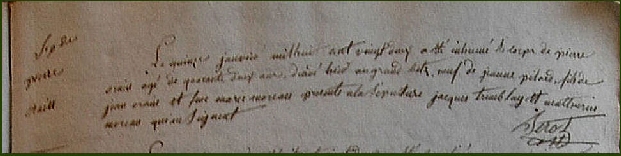 Sep de
pierre
orain
Le quinze janvier mil huit cent vingt deux a été inhumé le corps de pierre
orain agé de quarante deux ans, décédé hier au grand betz, veuf de jeanne pilard, fils de
jean orain et feue marie moreau presents a la sépulture jacques tremblay et mathurin
moreau qui ne signent